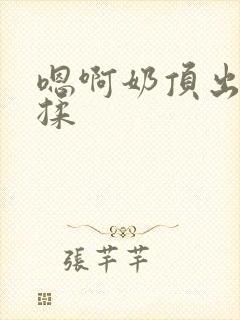 嗯啊奶頂出
揉
張芊芊